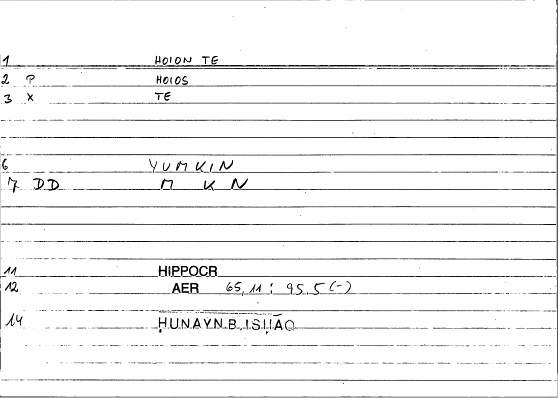 1 HOION TE
2 P HOIOS
3 X TE
6 YUMKIN
7 DD M K N
11 HIPPOCR
12 AER 65,11 : 95.5 (-)
14 ḤUNAYN B. ISḤĀQ